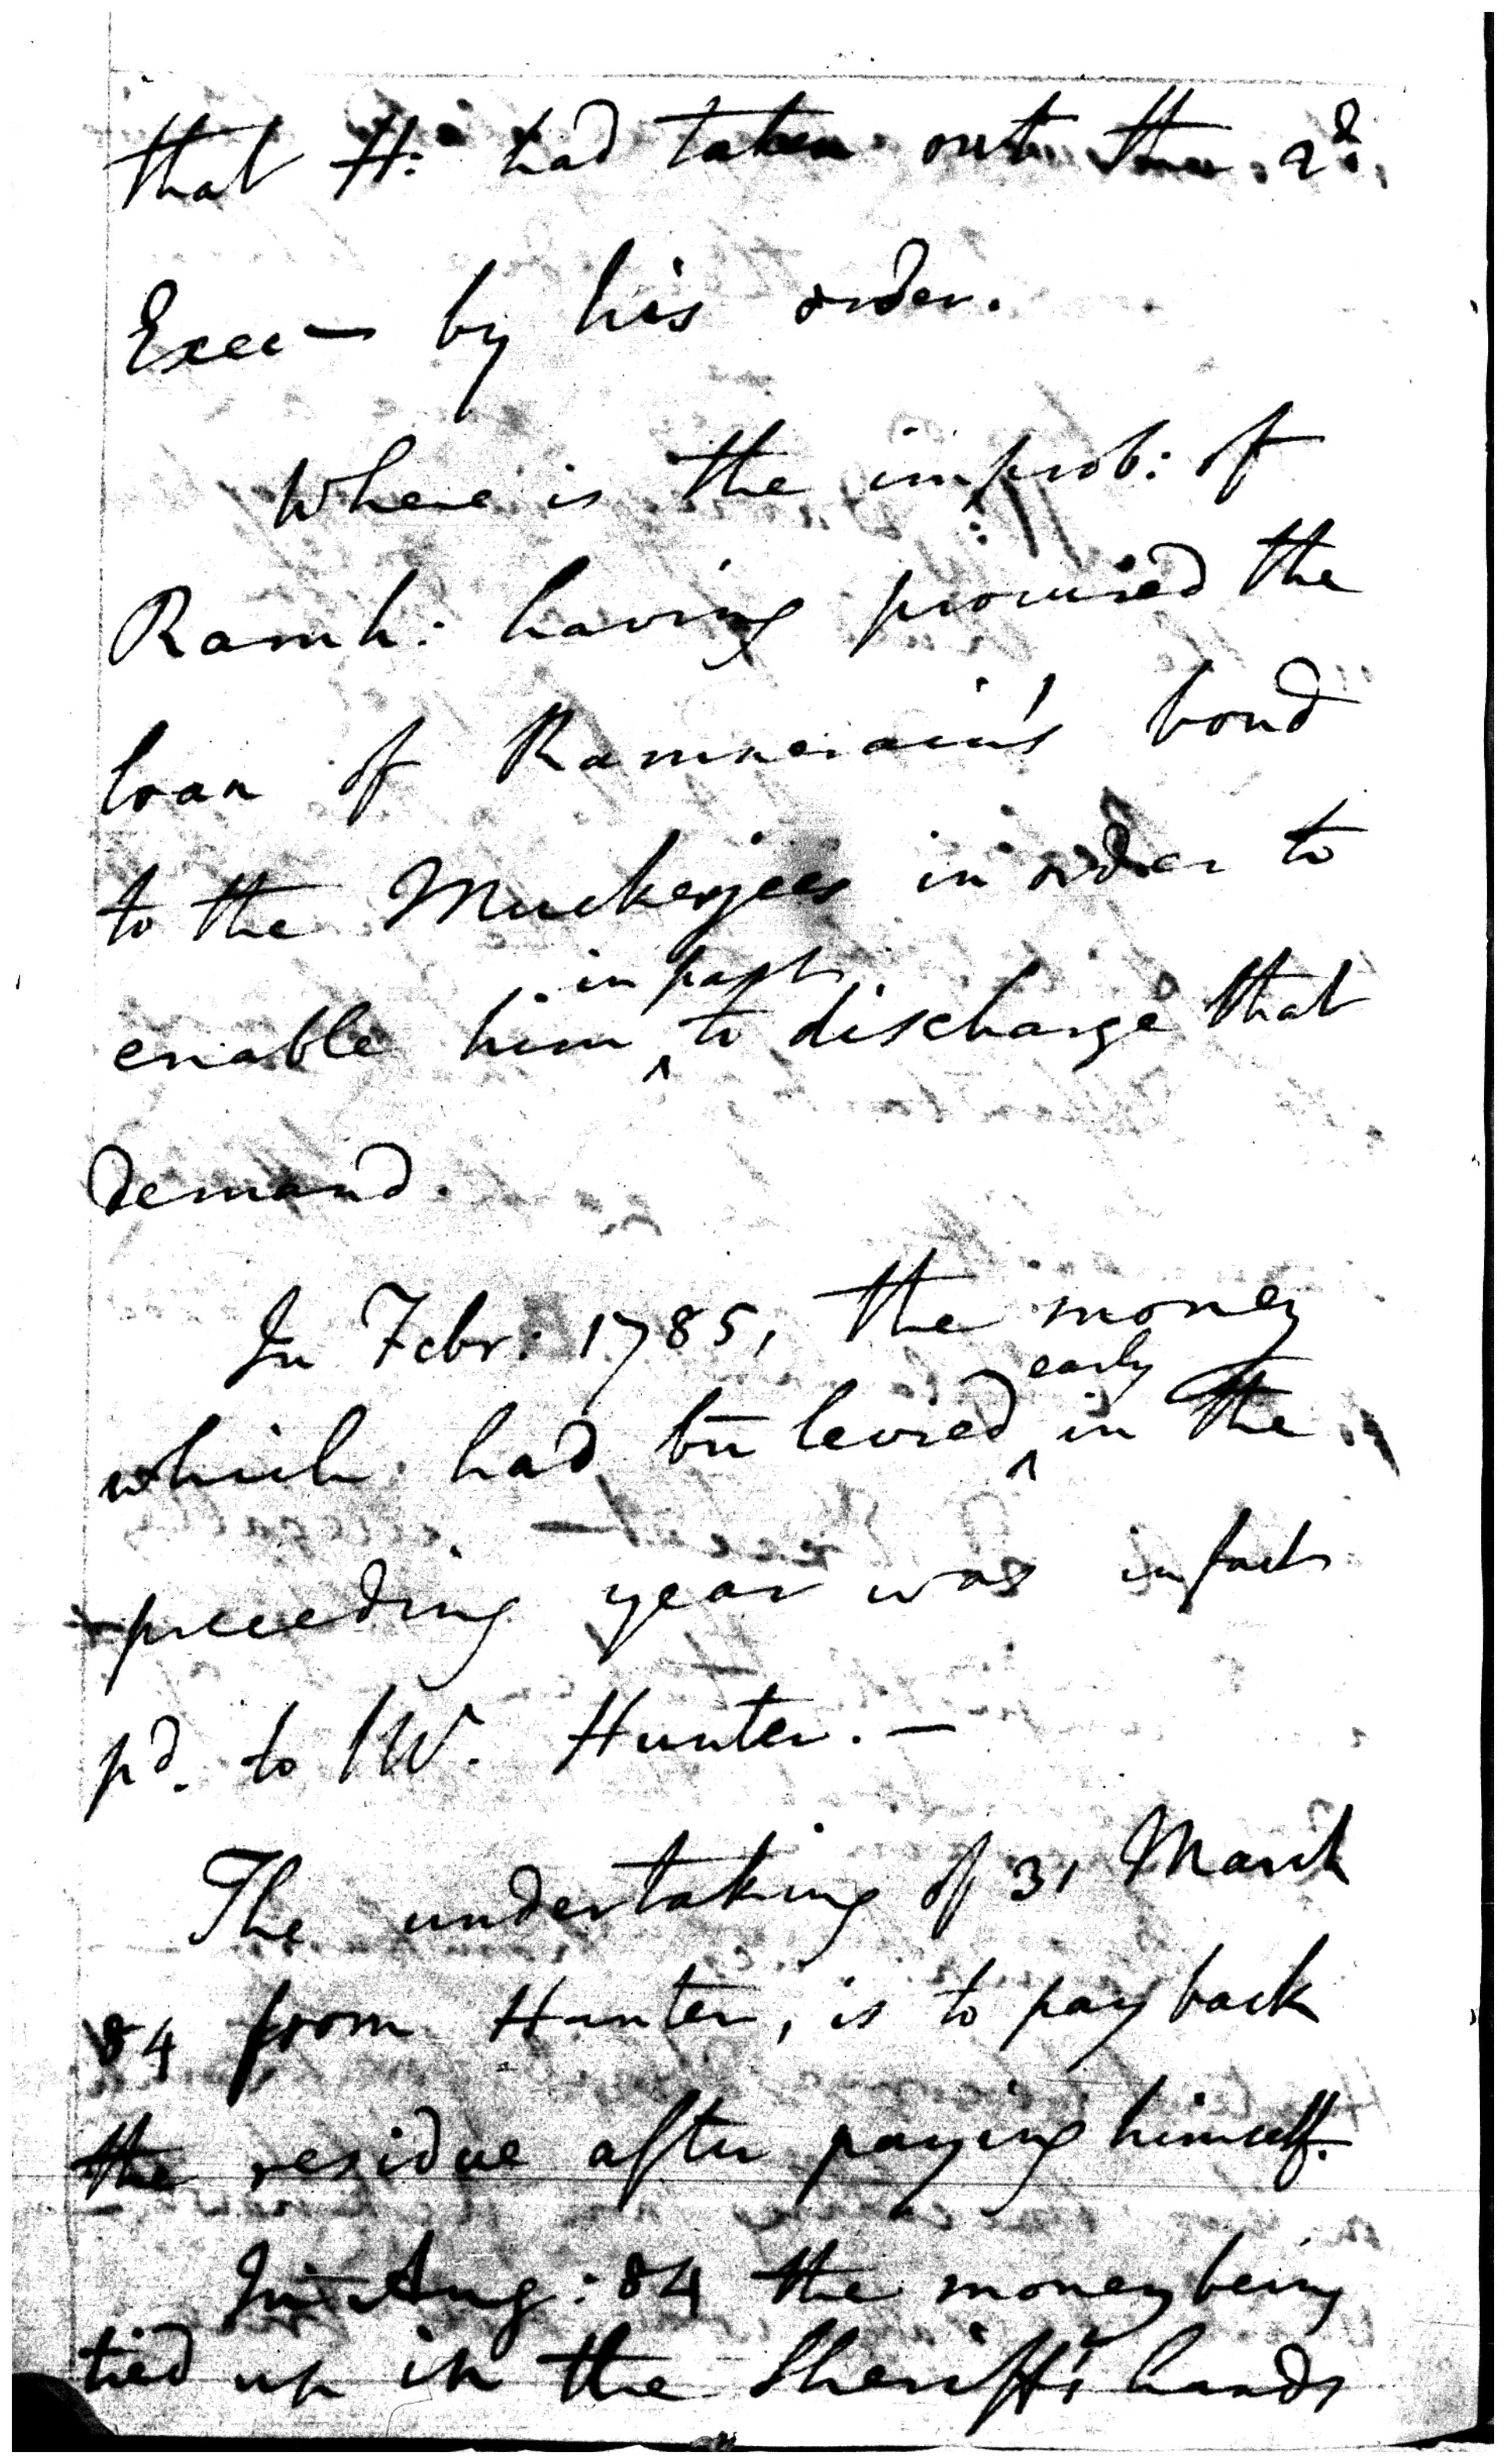 that H: had taken out the 2d.
Execn by his order.
Where is the improb: of
Ramh: having promised the
loan of Ramnerain's bond
to the Muckerjees in order to
enable him ^ in part to discharge that
demand.
In Febr: 1785, the money
which had bn levied ^ early in the
preceeding year was in fact
pd. to W. Hunter. —
The undertaking of 31 March
84 from Hunter, is to pay back
the residue after paying himself.
In Aug: 84 the money being
tied up in the Sheriff's hands